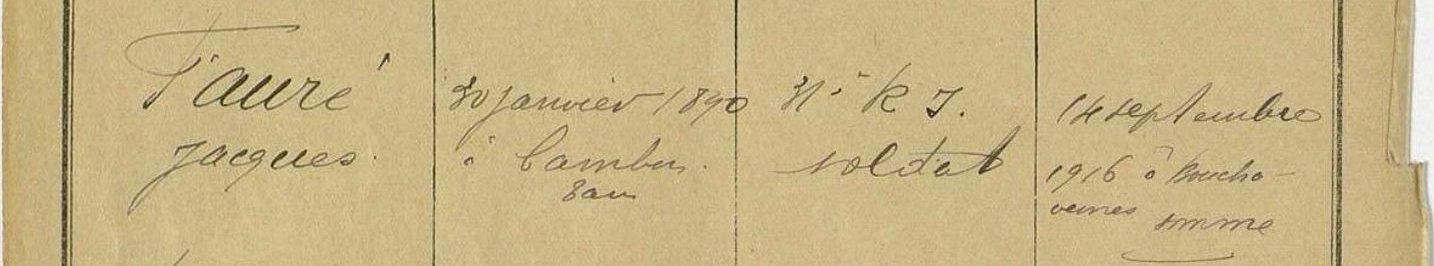 Fauré
Jacques.
30 janvier 1890
à Cambon
31e R I.
soldat
14 septembre
1916 à Boucha-
vesnes Somme